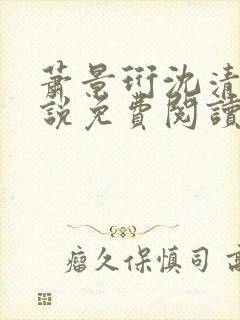 蕭景珩沈清
說免費閱讀
瘤久保慎司 高